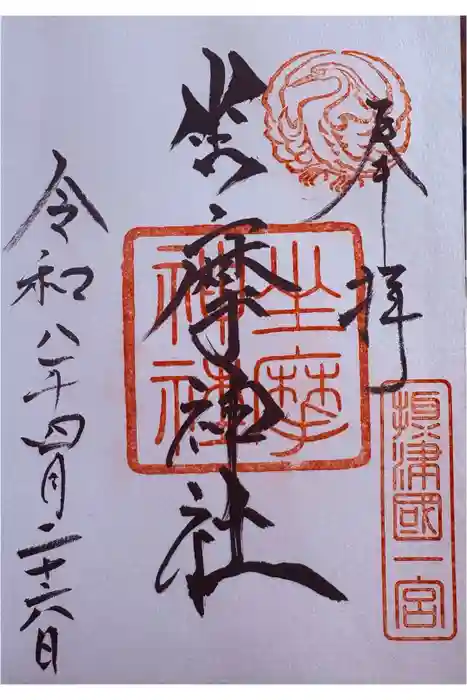 奉拝
攝津國一宮
坐摩神社
坐摩神社
令和八年四月二十六日